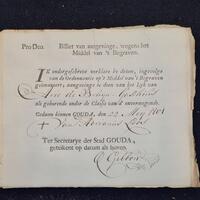 Pro Deo. Billet van aangevinge, wegens het
Middel van 't Begraven.
IK ondergeschreve verklare by desen, ingevolge
van de Ordonnantie op 't Middel van 't Begraven
geëmaneert, aangevinge is doen van het Lyk van
als gehorende onder de Classis van d'onvermogende.
Gedaan binnen GOUDA, den 22 May 1801
Ter Secretarye der Stad GOUDA,
getekent op datum als boven.